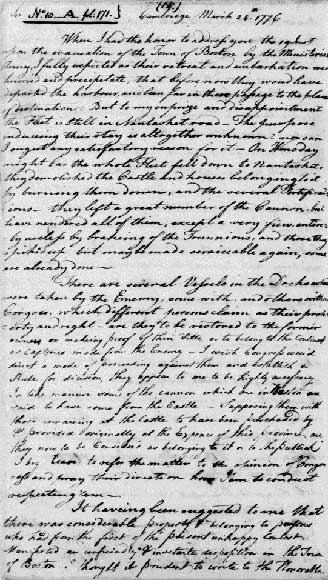 No 10. A. pt. 171. (19.) Cambridge March 24th 1776
When I had the honor to address you the 19 Inst. upon
the evacuation of the Town of Boston by the Ministerial
Army, I fully expected as their retreat and embarkation were
hurried and precipitate, that before now they would have
departed the harbour, and been far in their passage to the place
of destination. But to my surprize and disappointment
the Fleet is still in Nantasket road. The purpose
inducing their stay is altogether unknown; nor can
I suggest any satisfactory reason for it. On Wednesday
night last the whole Fleet fell down to Nantasket,
they demolished the Castle and houses belonging to it
by burning them down, and the several Fortificati
ions. they left a great number of the Cannon, but
have rendered all of them, except a very few, entire
ly useless by breaking of the Trunnions, and those they
spiked up but may be made serviceable again, some
are already done—
There are several Vessels in the Docks which
were taken by the Enemy, some with, and others without
Cargoes, which different persons claim as their prop
erty and right— are they to be restored to the former
owners on making proof of their Title, or to belong to the Continent
as Captures made from the Enemy— I wish Congress would
direct a mode of proceeding against them and establish a
Rule for decision, they appear to me to be highly necessary.
In like manner some of the cannon which are in Boston are
said to have come from the Castle— Supposing them with
those remaining at the Castle to have been purchased by
& provided originally at the Expence of this province, are
they now to be considered as belonging to it or to the publick
I beg leave to refer the matter to the opinion of Congr
ess and pray their direction how I am to conduct
respecting them—
It having been suggested to me that
there was considerable property & belonging to persons
who had from the first of the present unhappy contest
Manifested an unfriendly & inveterate disposition in the Town
of Boston, I thought it prudent to write to the Honorable